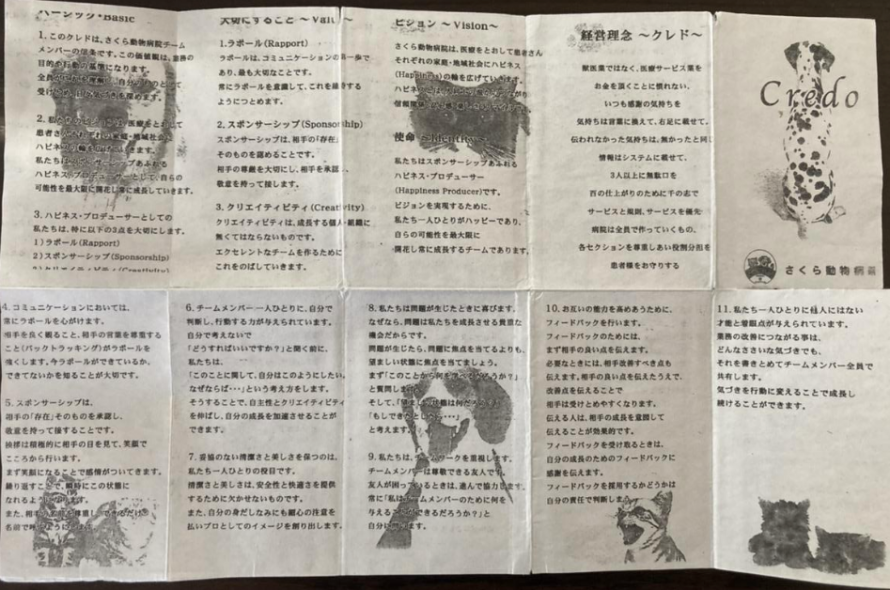 ベーシック・Basic
1. このクレドは、さくら動物病院チーム
メンバーの信条です。この価値観は、業務の
目的や行動の基盤になります。
全員が
2.
患者さん
ハピネス
私たちは
ハピネス・プロデューサーとして、自らの
可能性を最大限に開花し常に成長していきます。
3. ハピネス・プロデューサーとしての
私たちは、特に以下の3点を大切にします。
1)ラポール(Rapport)
2)スポンサーシップ(Sponsorship)
3)クリエイティビティ(Creativity)
大切にすること ~Value~
1.ラポール(Rapport)
ラポールは、コミュニケーションの第一歩で
あり、最も大切なことです。
常にラポールを意識して、これを維持する
ようにつとめます。
2.スポンサーシップ(Sponsorship)
スポンサーシップは、相手の「存在」
そのものを認めることです。
相手の尊厳を大切にし、相手を承認
敬意を持って接します。
3.クリエイティビティ(Creativity)
クリエイティビティは、成長する個人・組織に
無くてはならないものです。
エクセレントなチームを作るために
これをのばしていきます。
ビジョン ~Vision~
さくら動物病院は、医療をとおして患者さん
それぞれの家庭・地域社会にハピネス
(Happiness)の輪を広げていきます。
使命 ~Identity~
私たちはスポンサーシップあふれる
ハピネス・プロデューサー
(Happiness Producer)です。
ビジョンを実現するために、
私たち一人ひとりがハッピーであり、
自らの可能性を最大限に
開花し常に成長するチームであります。
経営理念 ~クレド~
獣医業ではなく、医療サービス業を
お金を頂くことに慣れない、
いつも感謝の気持ちを
気持ちは言葉に換えて、右足に載せて、
伝われなかった気持ちは、無かったと同じ
情報はシステムに載せて、
3人以上に無駄口を
百の仕上がりのために千の志で
サービスと規則、サービスを優先
病院は全員で作っていくもの、
各セクションを尊重しあい役割分担を
患者様をお守りする
Credo
さくら動物病院
4. コミュニケーションにおいては、
常にラポールを心がけます。
相手を良く観ること、相手の言葉を尊重する
こと(バックトラッキング)がラポールを
強くします。今ラポールができているか、
できてないかを知ることが大切です。
5. スポンサーシップは、
相手の「存在」そのものを承認し、
敬意を持って接することです。
挨拶は積極的に相手の目を見て、笑顔で
こころから行います。
まず笑顔になることで感情がついてきます。
繰り返すことで、瞬時にこの状態に
なれるよう
また、相手の名前を尊重し、できるだけ
名前で呼
6. チームメンバー一人ひとりに、自分で
判断し、行動する力が与えられています。
自分で考えないで
「どうすればいいですか?」と聞く前に、
私たちは、
「このことに関して、自分はこのようにしたい、
なぜならば・・・」という考え方をします。
そうすることで、自主性とクリエイティビティ
を伸ばし、自分の成長を加速させることが
できます。
7. 妥協のない清潔さと美しさを保つのは、
私たち一人ひとりの役目です。
清潔さと美しさは、安全性と快適さを提供
するために欠かせないものです。
また、自分の身だしなみにも細心の注意を
払いプロとしてのイメージを創り出します。
8. 私たちは問題が生じたときに喜びます。
なぜなら、問題は私たちを成長させる貴重な
機会だからです。
問題が生じたら、問題に焦点を当てるよりも、
望ましい状態に焦点を当てましょう。
まず「このことから何を
と質問し
そして、「望ましい状態は何だろう
「もし
と考えます。
9. 私たちは、チームワークを重視します。
チームメンバーは尊敬できる友人です
友人が困っているときは、進んで協力します。
常に「私はチームメンバーのために何を
与えることができるだろうか?」と
自分に
10. お互いの能力を高めあうために、
フィードバックを行います。
フィードバックのためには、
まず相手の良い点を伝えます。
必要なときには、相手改善すべき点も
伝えます。相手の良い点を伝えたうえで、
改善点を伝えることで
相手は受けとめやすくなります。
伝える人は、相手の成長を意識して
伝えることが効果的です。
フィードバックを受け取るときは、
自分の成長のためのフィードバックに
感謝を伝えます。
フィードバックを採用するかどうかは
自分の責任で判断します。
11. 私たち一人ひとりに他人にはない
才能と着眼点が与えられています。
業務の改善につながる事は、
どんなささいな気づきでも、
それを書きとめてチームメンバー全員で
共有します。
気づきを行動に変えることで成長し
続けることができます。